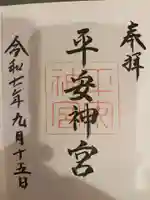 奉拝
平安神宮
令和七年九月十五日